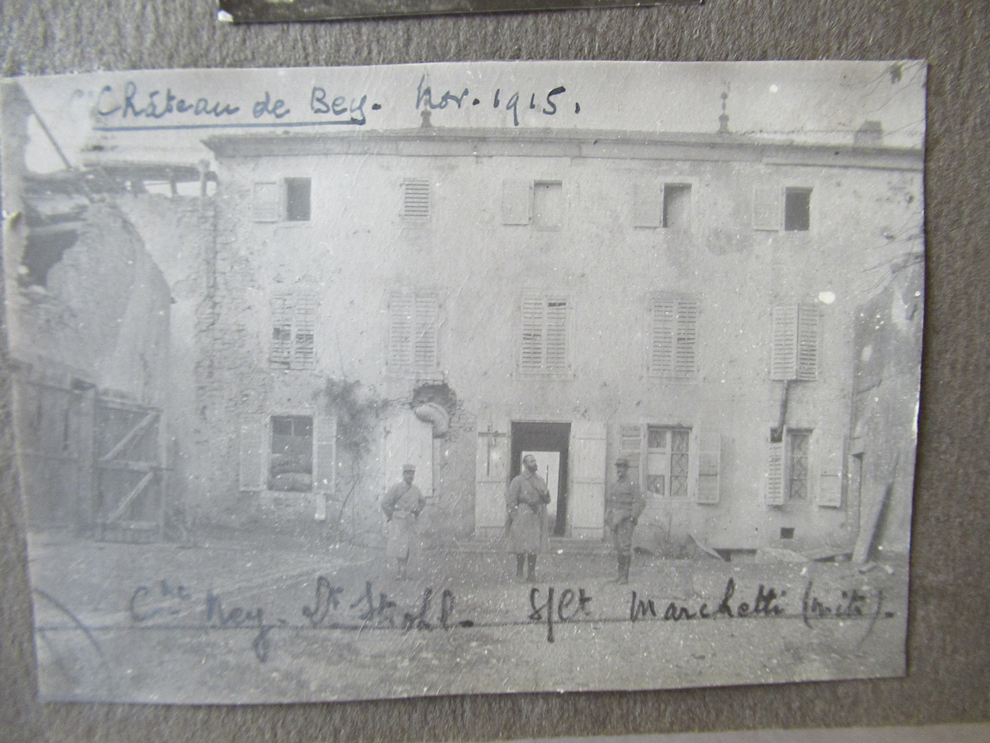 Château de Bey. Nov. 1915.
Cne Ney. Dr Strohl. S/Lt Marchetti (mitr).